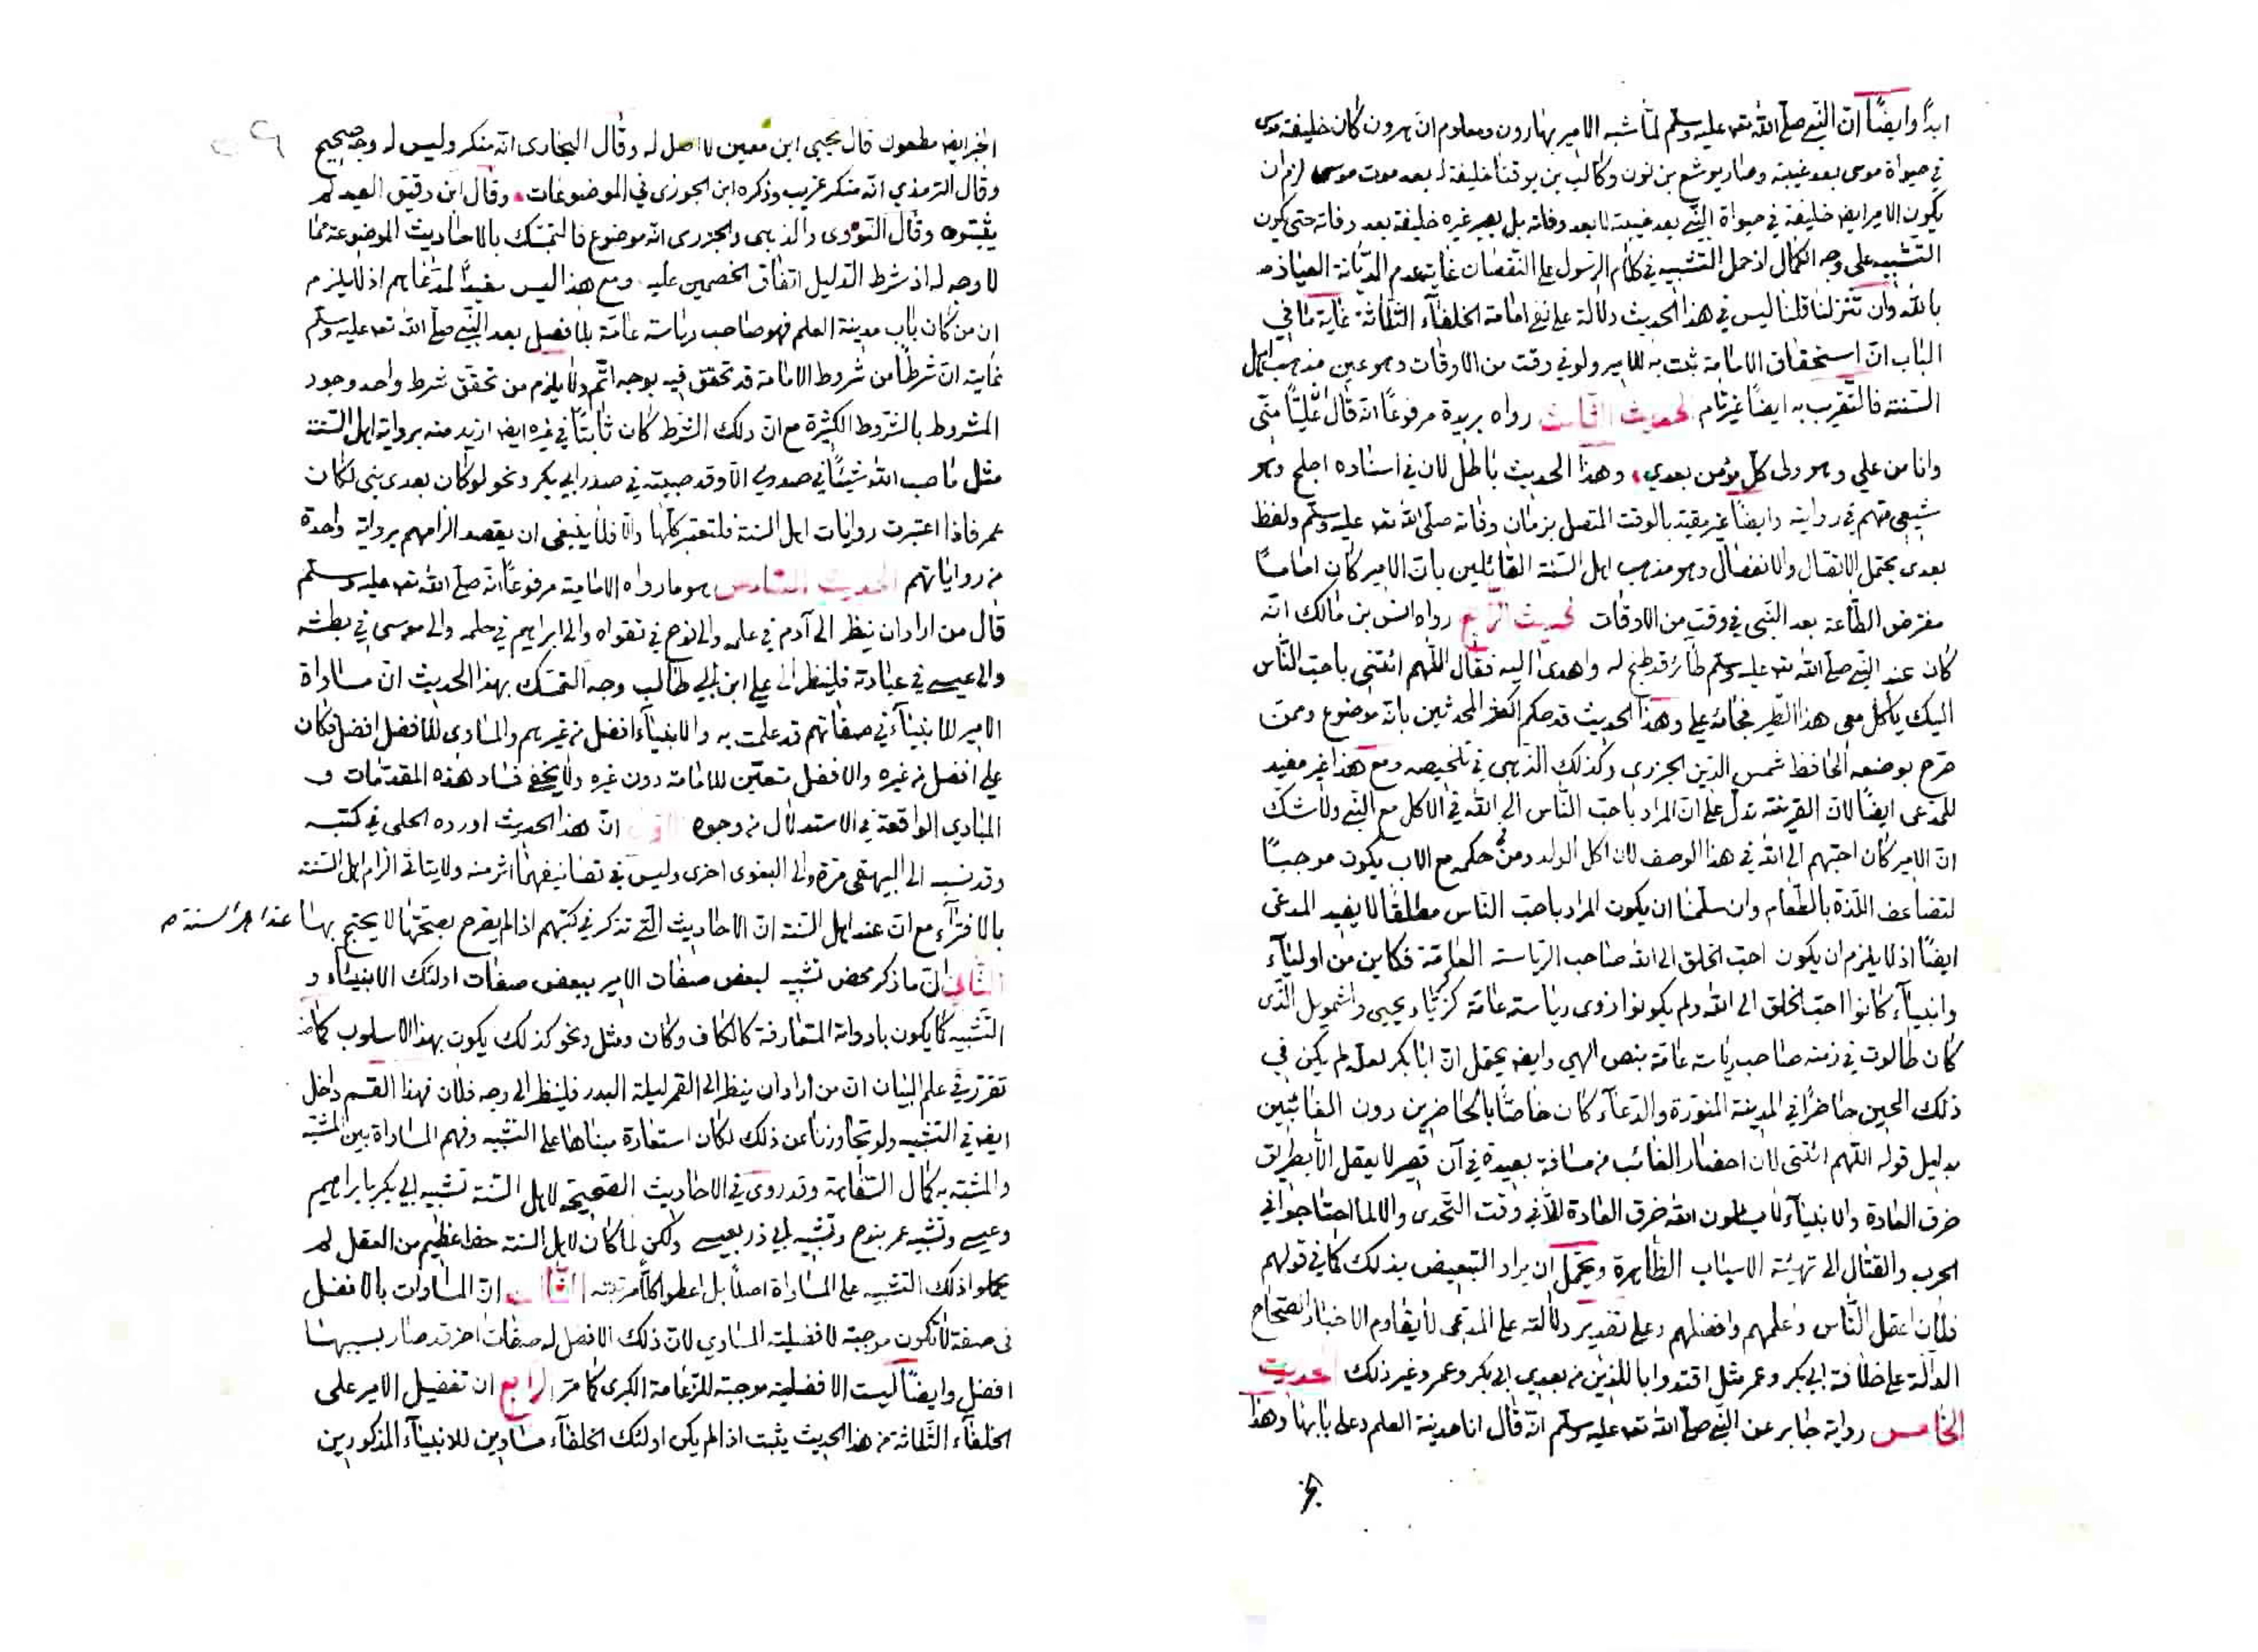 ابدًا وايضًا ان النبي صلى الله تعه عليه وسلم لما شبه الامير بهارون ومعلوم ان هرون كان خليفة موسى
في حيوة موسى بعد غيبته وصار يوشع بن نون وكالب بن يوقنا خليفة له بعد موت موسى لزم ان
يكون الامير ايضا خليفة في حيوة النبي بعد غيبته لا بعد وفاته بل يصير غيره خليفة بعد وفاته حتى يكون
التشبيه على وجه الكمال اذ حمل التشبيه في كلام الرسول على النقصان غاية عدم الديانة العياذ
بالله وان تنزلنا قلنا ليس في هذا الحديث دلالة على نفي امامة الخلفاء الثلاثة غاية ما في
الباب ان استحقاق الامامة ثبت به للامير ولو في وقت من الاوقات وهو عين مذهب اهل
السنة فالتقريب به ايضًا غير تام الحديث الثالث رواه بريدة مرفوعًا انه قال ان عليًّا منّي
وانا من علي وهو ولى كل مؤمن بعدي وهذا الحديث باطل لان في اسناده اجلح وهو
شيعي متهم في روايته وايضًا غير مقيد بالوقت المتصل بزمان وفاته صلى الله تعه عليه وسلم ولفظ
بعدى يحتمل الاتصال والانفصال وهو مذهب اهل السنة القائلين بان الامير كان امامًا
مفترض الطاعة بعد النبى في وقت من الاوقات الحديث الرابع رواه انس بن مالك انه
كان عند النبي صلى الله تعه عليه وسلم طائر قد طبخ له واهدى اليه فقال اللهم ائتنى باحب الناس
اليك ياكل معى هذا الطير فجائه على وهذا الحديث قد حكم اكثر المحدثين بانه موضوع وممن
صرح بوضعه الحافظ شمس الدين الجزرى وكذلك الذهبى في تلخيصه ومع هذا غير مفيد
للمدعى ايضًا لان القرينة تدل على ان المراد باحب الناس الى الله في الاكل مع النبي ولا شك
ان الامير كان احبهم الى الله في هذا الوصف لان اكل الولد ومن في حكمه مع الاب يكون موجبًا
لتضاعف اللذة بالطعام وان سلمنا ان يكون المراد باحب الناس مطلقًا لا يفيد المدعى
ايضًا اذ لا يلزم ان يكون احب الخلق الى الله صاحب الرياسة العامة فكاين من اولياء
وانبياء كانوا احب الخلق الى الله ولم يكونوا ذوى رياسة عامة كزكريا ويحيى واشمويل الذى
كان طالوت في زمنه صاحب رياسة عامة بنص الهى وايضا يحتمل ان ابا بكر لعله لم يكن في
ذلك الحين حاضرًا في المدينة المنورة والدعاء كان خاصًا بالحاضرين دون الغائبين
بدليل قوله اللهم ائتنى لان احضار الغائب من مسافة بعيدة في آن قصير لا يعقل الا بطريق
خرق العادة والانبياء لا يسئلون الله خرق العادة الا في وقت التحدى والا لما احتاجوا في
الحرب والقتال الى تهيئة الاسباب الظاهرة ويحتمل ان يراد التبعيض بذلك كما في قولهم
فلان اعقل الناس واعلمهم وافضلهم وعلى تقدير دلالته على المدعى لا يقاوم الاخبار الصحاح
الدالة على خلافة ابى بكر وعمر مثل اقتدوا باللذين من بعدي ابى بكر وعمر وغير ذلك الحديث
الخامس رواية جابر عن النبي صلى الله تعه عليه وسلم انه قال انا مدينة العلم وعلى بابها وهذا
الخبر ايضا مطعون قال يحيى ابن معين لا اصل له وقال البخارى انه منكر وليس له وجه صحيح
وقال الترمذي انه منكر غريب وذكره ابن الجوزى في الموضوعات وقال ابن دقيق العيد لم
يثبتوه وقال النووى والذهبى والجزرى انه موضوع فالتمسك بالاحاديث الموضوعة مما
لا وجه له اذ شرط الدليل اتفاق الخصمين عليه ومع هذا ليس مفيدًا لمدعاهم اذ لا يلزم
ان من كان باب مدينة العلم فهو صاحب رياسة عامة بلا فصل بعد النبي صلى الله تعه عليه وسلم
غايته ان شرطًا من شروط الامامة قد تحقق فيه بوجه اتم ولا يلزم من تحقق شرط واحد وجود
المشروط بالشروط الكثيرة مع ان ذلك الشرط كان ثابتًا في غيره ايضا ازيد منه برواية اهل السنة
مثل ما صب الله شيئًا في صدري الا وقد صببته في صدر ابى بكر ونحو لو كان بعدى نبى لكان
عمر فاذا اعتبرت روايات اهل السنة فلتعتبر كلها والا فلا ينبغى ان يقصد الزامهم برواية واحدة
من رواياتهم الحديث السادس هو ما رواه الامامية مرفوعًا انه صلى الله تعه عليه وسلم
قال من اراد ان ينظر الى آدم في علمه والى نوح في تقواه والى ابراهيم في حلمه والى موسى في بطشه
والى عيسى في عبادته فلينظر الى على ابن ابي طالب وجه التمسك بهذا الحديث ان مساواة
الامير للانبياء في صفاتهم قد علمت به والانبياء افضل من غيرهم والمساوى للافضل افضل فكان
على افضل من غيره والافضل متعين للامامة دون غيره ولا يخفى فساد هذه المقدمات و
المبادي الواقعة في الاستدلال من وجوه الاول ان هذا الحديث اورده الحلى في كتبه
وقد نسبه الى البيهقى مرة والى البغوى اخرى وليس في تصانيفهما اثر منه ولا يتاتى الزام اهل السنة
بالافتراء مع ان عند اهل السنة ان الاحاديث التي تذكر في كتبهم اذا لم يصرح بصحتها لا يحتج بها عند اهل السنة
الثانى ان ما ذكر محض تشبيه لبعض صفات الامير ببعض صفات اولئك الانبياء و
التشبيه كما يكون بادواته المتعارفة كالكاف وكان ومثل ونحو كذلك يكون بهذا الاسلوب كما
تقرر في علم البيان ان من اراد ان ينظر الى القمر ليلة البدر فلينظر الى وجه فلان فهذا القسم داخل
ايضا في التشبيه ولو تجاوزنا عن ذلك لكان استعارة مبناها على التشبيه وفهم المساواة بين المشبه
والمشبه به كمال السفاهة وقد روى في الاحاديث الصحيحة لاهل السنة تشبيه ابي بكر بابراهيم
وعيسى وتشبيه عمر بنوح وتشبيه ابي ذر بعيسى ولكن لما كان لاهل السنة حظ عظيم من العقل لم
يحملوا ذلك التشبيه على المساواة اصلًا بل اعطوا كلًا مرتبته الثالث ان المساوات بالافضل
فى صفة لا تكون موجبة لافضلية المساوي لان ذلك الافضل له صفات اخر قد صار بسببها
افضل وايضًا ليست الافضلية موجبة للزعامة الكبرى كما مر الرابع ان تفضيل الامير على
الخلفاء الثلاثة من هذا الحديث يثبت اذا لم يكن اولئك الخلفاء مساوين للانبياء المذكورين